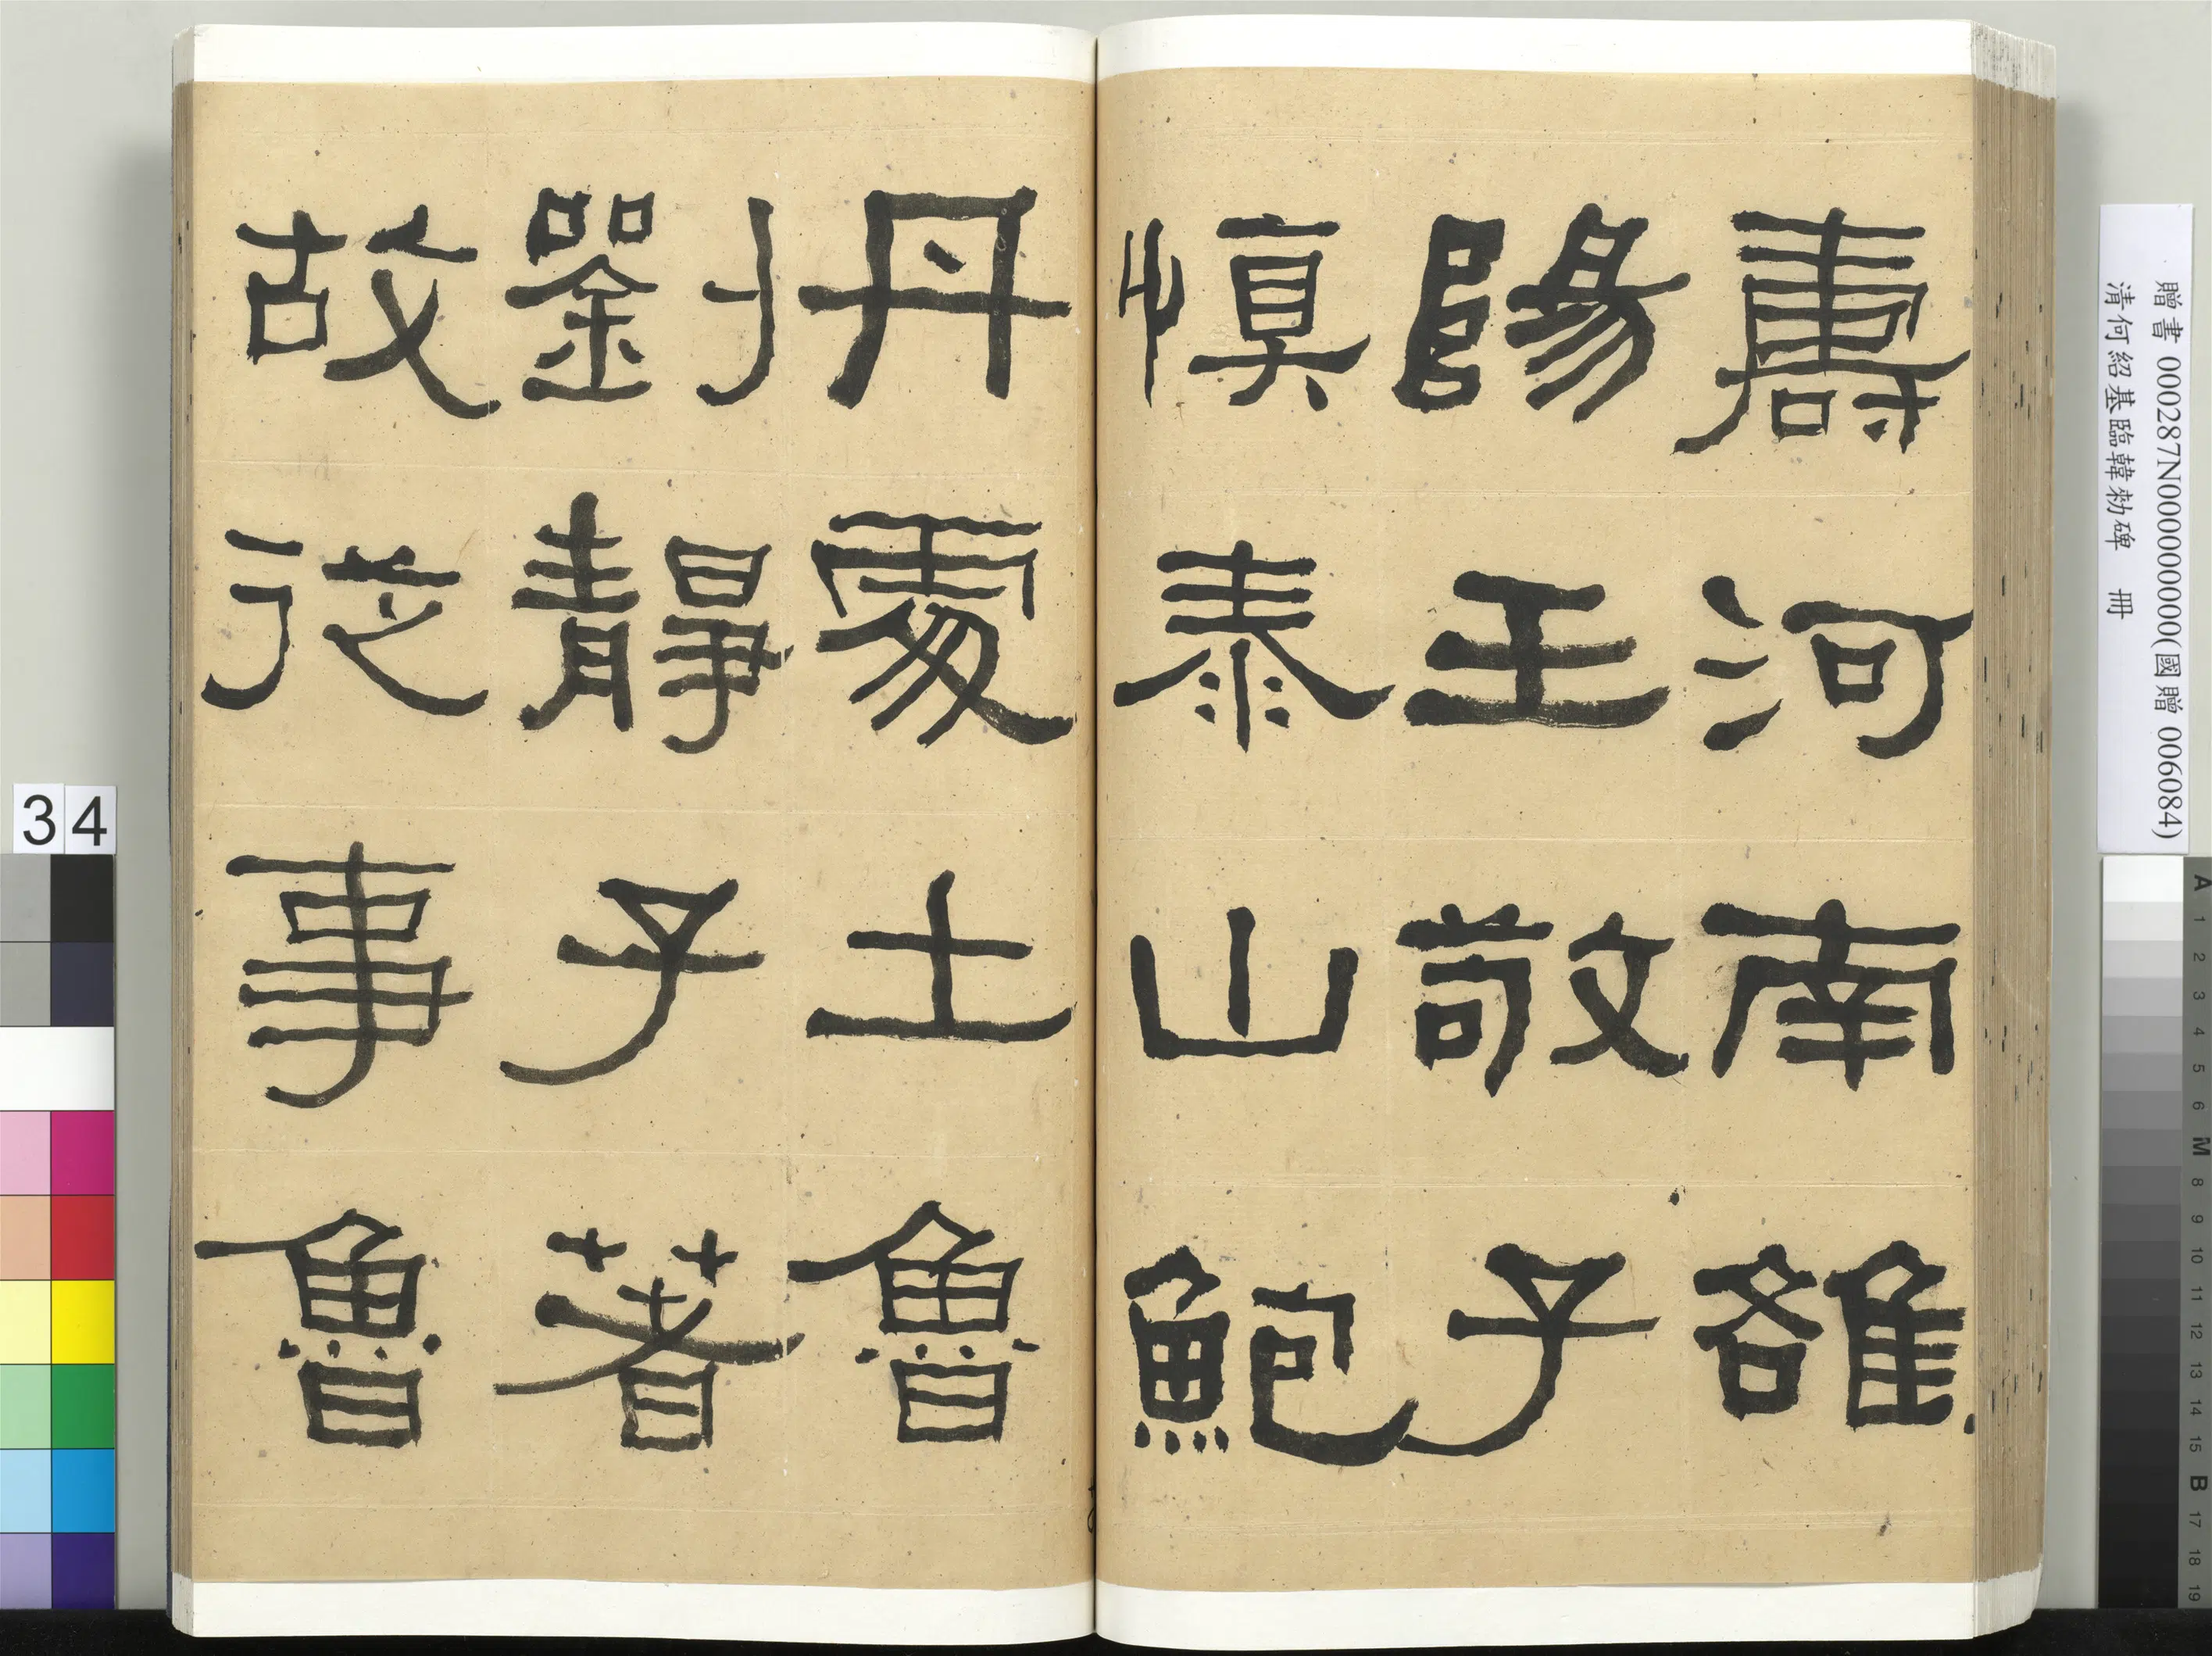 壽河南雒
陽王敬子
慎泰山鮑
丹處士魯
劉靜子著
故從事魯
贈書 000287N000000000(國贈 006084)
清何紹基臨韓勑碑 冊
34
A 1 2 3 4 5 6 M 8 9 10 11 12 13 14 15 B 17 18 19